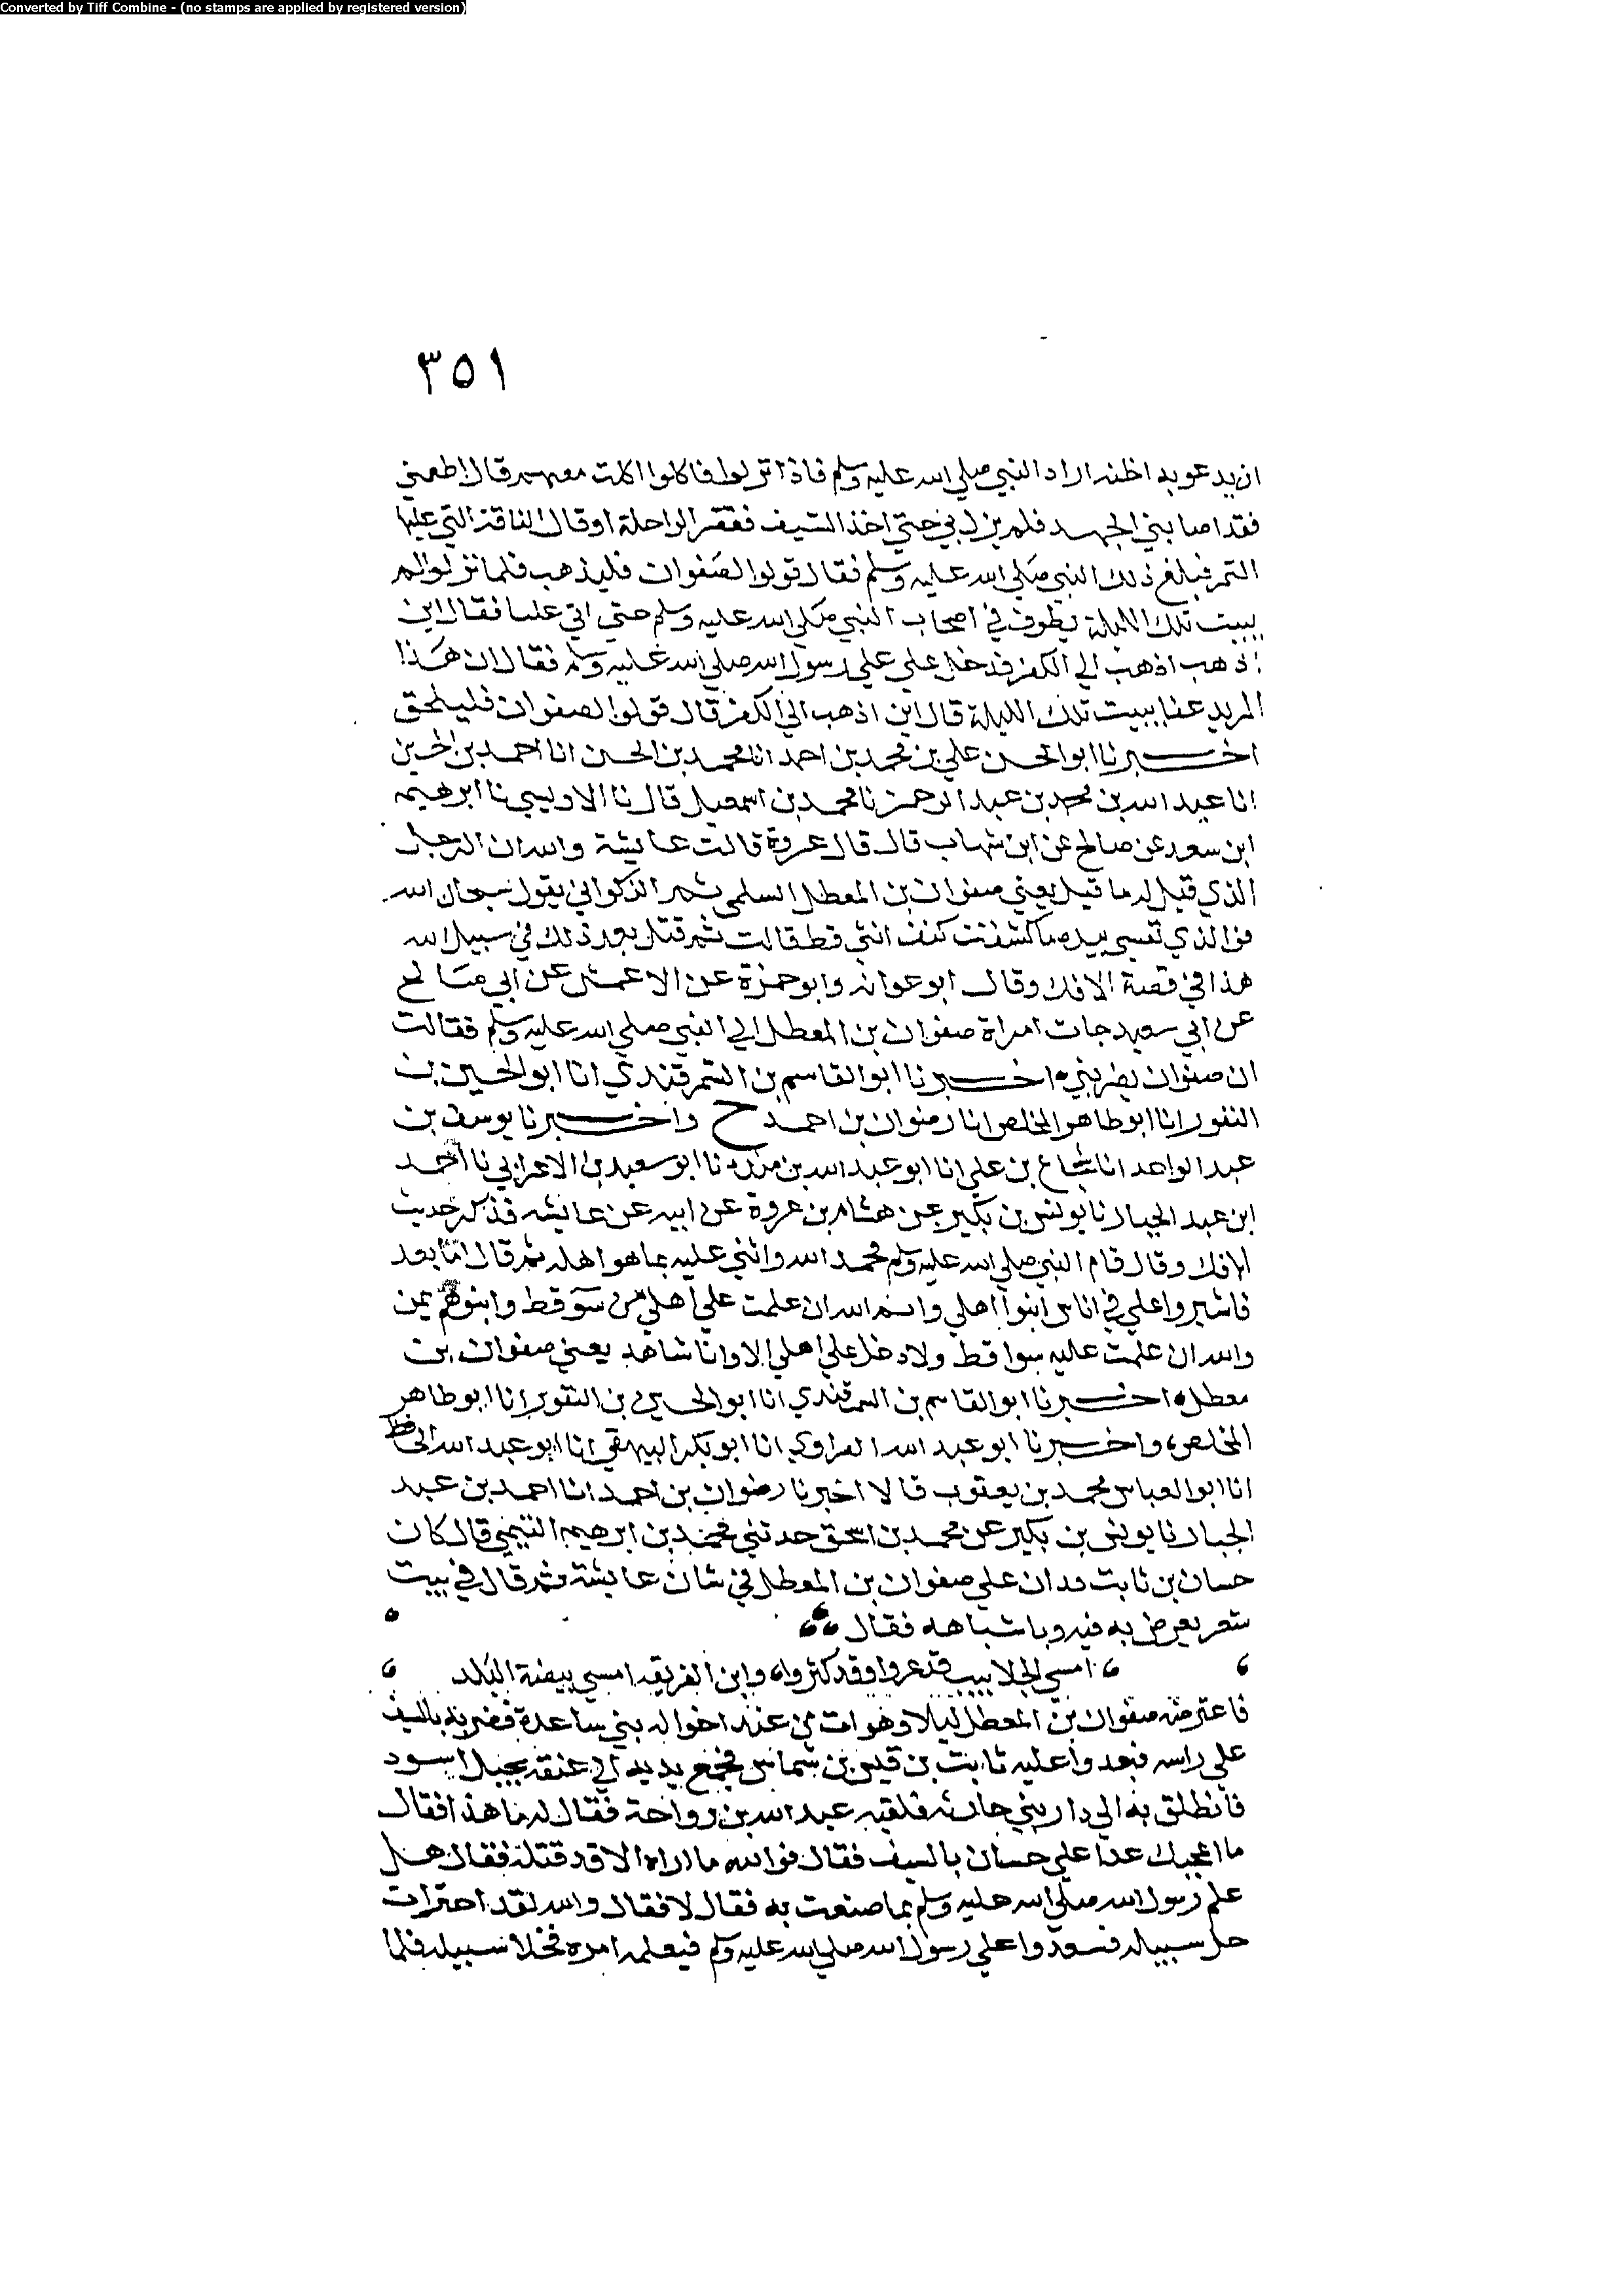 Converted by Tiff Combine - (no stamps are applied by registered version)
٣٥١
ان يدعو به اظنه اراد النبي صلي الله عليه وسلم فاذا نزلوا فاكلوا اكلت معهم قال اطعمني
فقد اصابني الجهد فلم يزل بي حتي اخذ السيف فعقر الراحلة او قال الناقة التي عليها
التمر فبلغ ذلك النبي صلي الله عليه وسلم فقال قولوا لصفوان فليذهب فلما نزلوا لم
يبيت تلك الليلة يطوف في اصحاب النبي صلي الله عليه وسلم حتي اتي عليا فقال اين
اذهب اذهب الي الكفر فدخل علي علي رسول الله صلي الله عليه وسلم فقال ان هذا
لم يدعنا يبيت تلك الليلة قال اين اذهب الي الكفر قال قولوا لصفوان فليلحق
اخبرنا ابو الحسن علي بن محمد بن احمد انا محمد بن الحسن انا احمد بن الحسين
انا عبد الله بن محمد بن عبد الرحمن نا محمد بن اسمعيل قال نا الاويسي نا ابرهيم
ابن سعد عن صالح عن ابن شهاب قال قال عروة قالت عايشة والله ان الرجل
الذي قيل له ما قيل يعني صفوان بن المعطل السلمي ثم الذكواني يقول سبحان الله
فوالذي نفسي بيده ما كشفت كنف انثي قط قالت ثم قتل بعد ذلك في سبيل الله
هذا في قصة الافك وقال ابو عوانه وابو حمزة عن الاعمش عن ابي صالح
عن ابي سعيد جات امراة صفوان بن المعطل الي النبي صلي الله عليه وسلم فقالت
ان صفوان يضربني ه اخبرنا ابو القاسم بن السمرقندي انا ابو الحسين بن
النقور انا ابو طاهر المخلص انا رضوان بن احمد ح واخبرنا يوسف بن
عبد الواحد انا شجاع بن علي انا ابو عبد الله بن منده نا ابو سعيد بن الاعرابي نا احمد
ابن عبد الجبار نا يونس بن بكير عن هشام بن عروة عن ابيه عن عايشه فذكر حديث
الافك وقال قام النبي صلي الله عليه وسلم فحمد الله واثني عليه بما هو اهله ثم قال اما بعد
فاشيروا علي في اناس ابنوا اهلي وايم الله ان علمت علي اهلي من سوء قط وابنوهم بمن
والله ان علمت عليه سوا قط ولا دخل علي اهلي الا وانا شاهد يعني صفوان بن
معطل ه اخبرنا ابو القاسم بن السمرقندي انا ابو الحسين بن النقور انا ابو طاهر
المخلص ه واخبرنا ابو عبد الله الفراوي انا ابو بكر البيهقي انا ابو عبد الله الحافظ
انا ابو العباس محمد بن يعقوب قالا اخبرنا رضوان بن احمد انا احمد بن عبد
الجبار نا يونس بن بكير عن محمد بن اسحق حدثني محمد بن ابرهيم التيمي قال كان
حسان بن ثابت علي صفوان بن المعطل في شان عايشة ثم قال في بيت
شعر يعرض به فيه وباشباهه فقال
امسي الجلابيب قد عزوا وقد كثروا ه وابن الفريعة امسي بيضة البلد
فاعترضه صفوان بن المعطل ليلا وهو ات من عند اخواله بني ساعدة فضربه بالسيف
علي راسه فيعدوا عليه ثابت بن قيس بن شماس فجمع يديه الي عنقه بحبل اسود
فانطلق به الي دار بني حارثه فلقيه عبد الله بن رواحة فقال له ما هذا فقال
ما اعجبك عدا علي حسان بالسيف فقال فوالله ما اراه الا قد قتله فقال هل
علم رسول الله صلي الله عليه وسلم بما صنعت به فقال لا فقال والله لقد اجترات
خل سبيله فسنغدوا علي رسول الله صلي الله عليه وسلم فيعلمه امره فخلا سبيله فلما